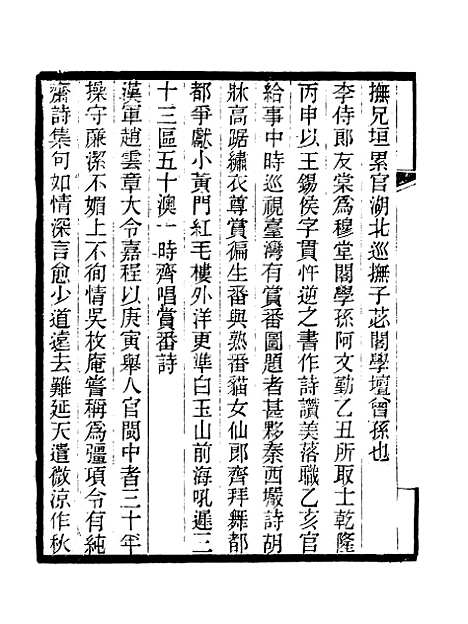 撫兄垣累官湖北巡撫子苾閣學壇曾孫也
李侍郎友棠爲穆堂閣學孫阿文勤乙丑所取士乾隆
丙申以王錫侯字貫忤逆之書作詩讚美落職乙亥官
給事中時巡視臺灣有賞番圖題者甚夥秦西巖詩胡
牀高踞繡衣尊賞徧生番與熟番貓女仙郎齊拜舞都
都爭獻小黃門紅毛樓外洋更準白玉山前海吼遲三
十三區五十澳一時齊唱賞番詩
漢軍趙雲章大令嘉程以庚寅舉人官閩中者三十年
操守廉潔不媚上不徇情吳枚庵嘗稱爲彊項令有純
齋詩集句如情深言愈少道遠去難延天遣微涼作秋